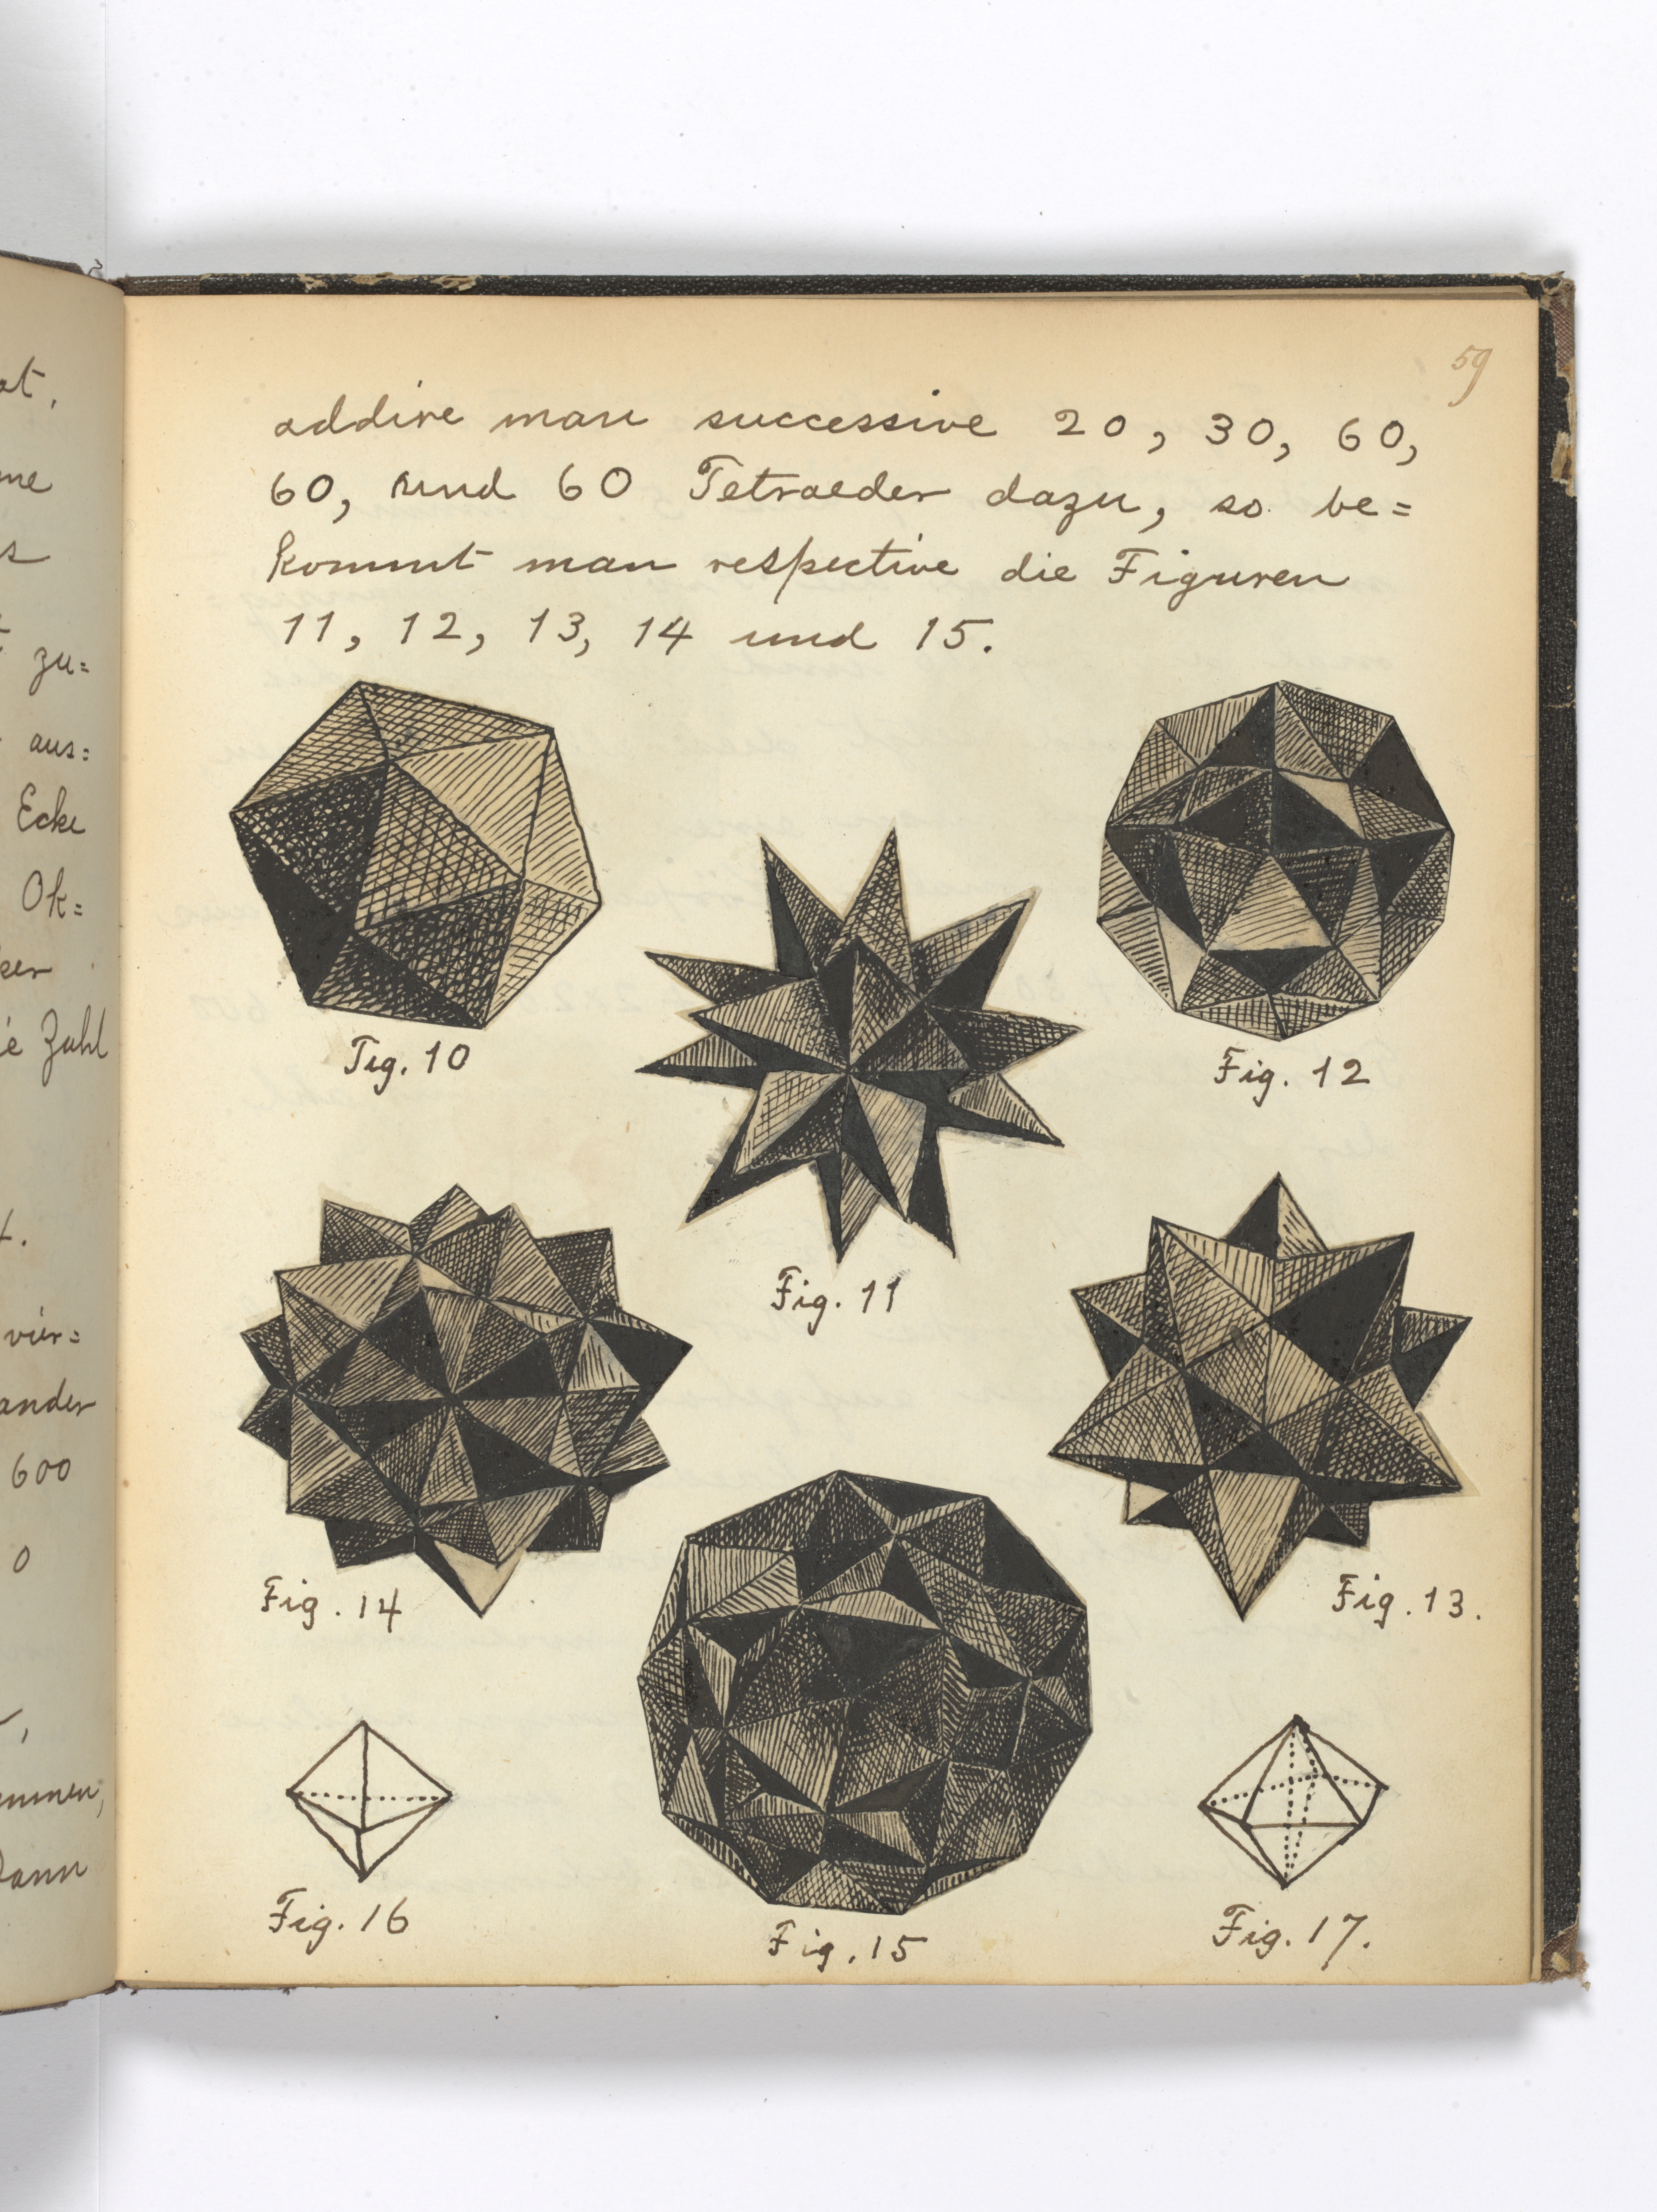 59
addire man successive 20, 30, 60,
60, und 60 Tetraeder dazu, so be=
kommt man respective die Figuren
11, 12, 13, 14 und 15.
Fig. 10
Fig. 12
Fig. 11
Fig. 14
Fig. 13.
Fig. 16
Fig. 15
Fig. 17.
zu=
aus=
Ecke
Ok=
Zahl
vier=
ander
600
0